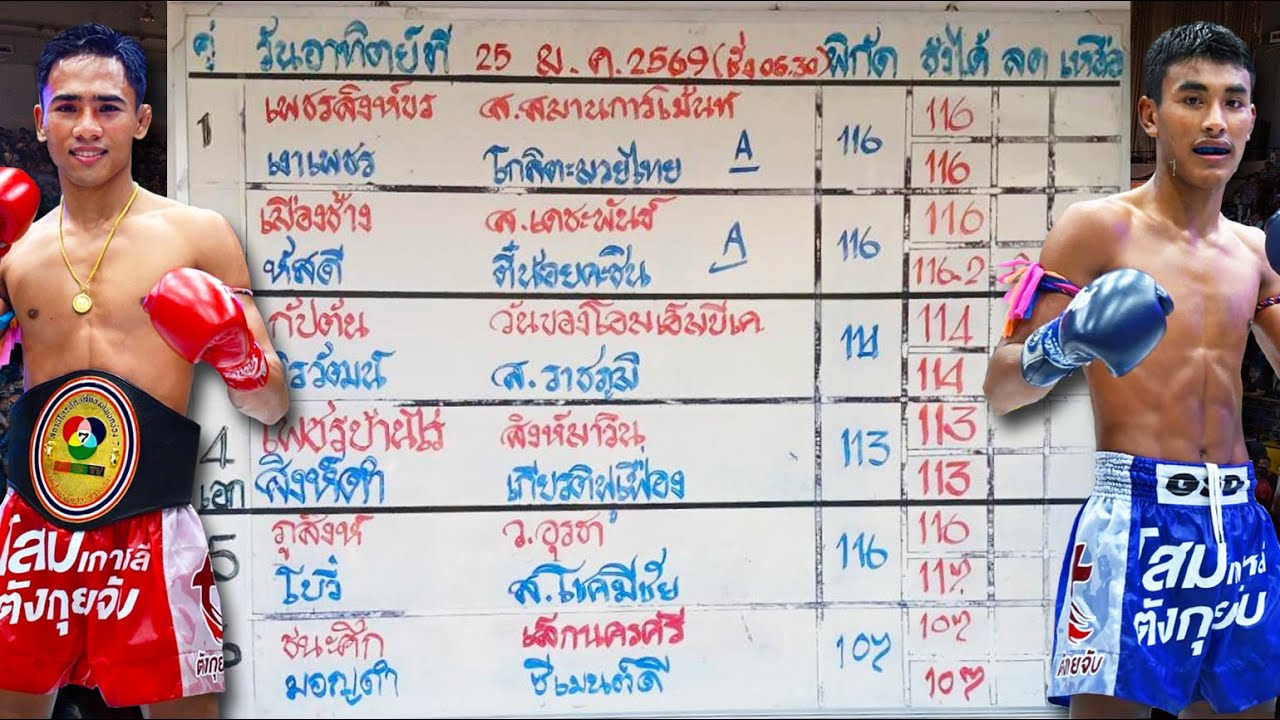 คู่ วันอาทิตย์ที่ 25 ม.ค.2569(ชั่ง 05.30) พิกัด ชั่งได้ ลด เหลือ
1 เพชรสิงห์ขร ส.สมานการ์เม้นท์ 116 116
เงาเพชร โกสิตะมวยไทย A 116
เมืองช้าง ส.เดชะพันธ์ 116 116
หัสดี ตี๋น้อยคะซีน A 116.2
กัปตัน วันของโอมเอ็มบีเค. 114 114
ส.ราชภูมิ 114
4 เพชรบ้านไร่ สิงห์มาวิน 113 113
เอก สิงห์ดำ เกียรติฟูเฟื่อง 113
5 ภูสิงห์ ว.อุรชา 116 116
โบวี่ ส.โชคมีชัย 117
ชนะศึก เล็กนครศรี 107 107
มอญดำ ซีเมนต์ดี 107
7
โสมเกาหลี
ตังกุยจับ
ตังกุยจับ
โสม
ตังกุยจับ